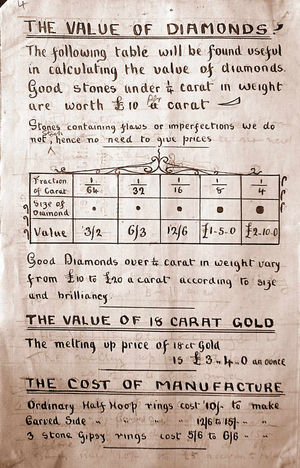 4
THE VALUE OF DIAMONDS.
The following table will be found useful
in calculating the value of diamonds.
Good stones under ¼ carat in weight
are worth £10 a carat
Stones containing flaws or imperfections we do
not, hence no need to give prices
Fraction of Carat 1/64 1/32 1/16 1/8 1/4
Size of Diamond
Value 3/2 6/3 12/6 £1-5-0 £2-10-0
Good Diamonds over ¼ carat in weight vary
from £10 to £20 a carat according to size
and brilliancy.
THE VALUE OF 18 CARAT GOLD
The melting up price of 18ct Gold
is £3 " 4 " 0 an ounce
THE COST OF MANUFACTURE
Ordinary Half Hoop rings cost 10/- to make
Carved Side " " 12/6 to 15/- " "
3 stone Gipsy rings cost 5/6 to 6/6 " "